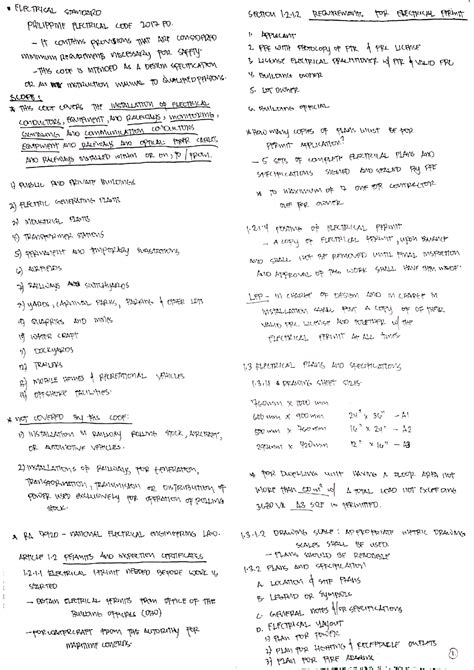 • ELECTRICAL STANDARD
PHILIPPINE ELECTRICAL CODE 2017 PD.
- IT CONTAINS PROVISIONS THAT ARE CONSIDERED
MINIMUM REQUIREMENTS NECESSARY FOR SAFETY.
- THIS CODE IS INTENDED AS A DESIGN SPECIFICATION
OR AN INSTRUCTION MANUAL TO QUALIFIED PERSONS.
SCOPE:
* THIS CODE COVERS THE INSTALLATION OF ELECTRICAL
CONDUCTORS, EQUIPMENT, AND RACEWAYS; MONITORING,
SIGNALING AND COMMUNICATION CONDUCTORS
EQUIPMENT AND RACEWAYS AND OPTICAL FIBER CABLES
AND RACEWAYS INSTALLED WITHIN OR ON, TO / FROM.
1) PUBLIC AND PRIVATE BUILDINGS
2) ELECTRIC GENERATING PLANTS
3) INDUSTRIAL PLANTS
4) TRANSFORMER STATIONS
5) PERMANENT AND TEMPORARY SUBSTATIONS
6) AIRFIELDS
7) RAILWAYS AND SWITCHYARDS
8) YARDS, CARNIVAL PARKS, PARKING & OTHER LOTS
9) QUARRIES AND MINES
10) WATER CRAFT
11) DOCKYARDS
12) TRAILERS
13) MOBILE HOMES & RECREATIONAL VEHICLES
14) OFFSHORE FACILITIES
* NOT COVERED BY THIS CODE:
1) INSTALLATION IN RAILWAY ROLLING STOCK, AIRCRAFT,
OR AUTOMOTIVE VEHICLES.
2) INSTALLATIONS OF RAILWAYS FOR GENERATION,
TRANSFORMATION, TRANSMISSION OR DISTRIBUTION OF
POWER USED EXCLUSIVELY FOR OPERATION OF ROLLING
STOCK.
* RA 7920 - NATIONAL ELECTRICAL ENGINEERING LAW.
ARTICLE 1.2 PERMITS AND INSPECTION CERTIFICATES
1.2.1.1 ELECTRICAL PERMIT NEEDED BEFORE WORK IS
STARTED
- OBTAIN ELECTRICAL PERMITS FROM OFFICE OF THE
BUILDING OFFICIALS (OBO)
- FOR WATERCRAFT FROM THE AUTHORITY FOR
MARITIME CONCERNS.
SECTION 1.2.1.2 REQUIREMENTS FOR ELECTRICAL PERMIT
1. APPLICANT
2. PEE WITH PHOTOCOPY OF PTR & PRC LICENSE
3. LICENSE ELECTRICAL PRACTITIONER W/ PTR & VALID PRC
4. BUILDING OWNER
5. LOT OWNER
6. BUILDING OFFICIAL
* HOW MANY COPIES OF PLANS MUST BE FOR
PERMIT APPLICATION?
- 5 SETS OF COMPLETE ELECTRICAL PLANS AND
SPECIFICATIONS SIGNED AND SEALED BY PEE
* TO MAXIMUM OF 7 ONE FOR CONTRACTOR
ONE FOR OWNER
1.2.1.4 POSTING OF ELECTRICAL PERMIT
- A COPY OF ELECTRICAL PERMIT, UPON ISSUANCE
AND SHALL NOT BE REMOVED UNTIL FINAL INSPECTION
AND APPROVAL OF THE WORK SHALL HAVE BEEN MADE.
LEP - IN CHARGE OF DESIGN AND IN CHARGE IN
INSTALLATION SHALL A COPY OF
VALID PRC LICENSE AND TOGETHER W/ THE
ELECTRICAL PERMIT AT ALL TIMES
1.3 ELECTRICAL PLANS AND SPECIFICATIONS
1.3.1.1 DRAWING SHEET SIZES:
760mm X 1000 mm
600 mm X 900 mm 24" X 36" - A1
500 mm X 760 mm
16" X 24" - A2
12" X 16" - A3
* FOR DWELLING UNIT HAVING A FLOOR AREA NOT
MORE THAN 50 m² W/ A TOTAL LOAD NOT EXCEEDING
3680 VA A3 SIZE IS PERMITTED.
1.3.1.2 DRAWING SCALE: APPROPRIATE METRIC DRAWING
SCALES SHALL BE USED.
- PLANS SHOULD BE READABLE
1.3.2 PLANS AND SPECIFICATION
A. LOCATION & SITE PLANS
B. LEGEND OR SYMBOLS
C. GENERAL NOTES &/OR SPECIFICATIONS
D. ELECTRICAL LAYOUT
1) PLAN FOR POWER
2) PLAN FOR LIGHTING & RECEPTACLE OUTLETS
3) PLAN FOR FIRE ALARM
1